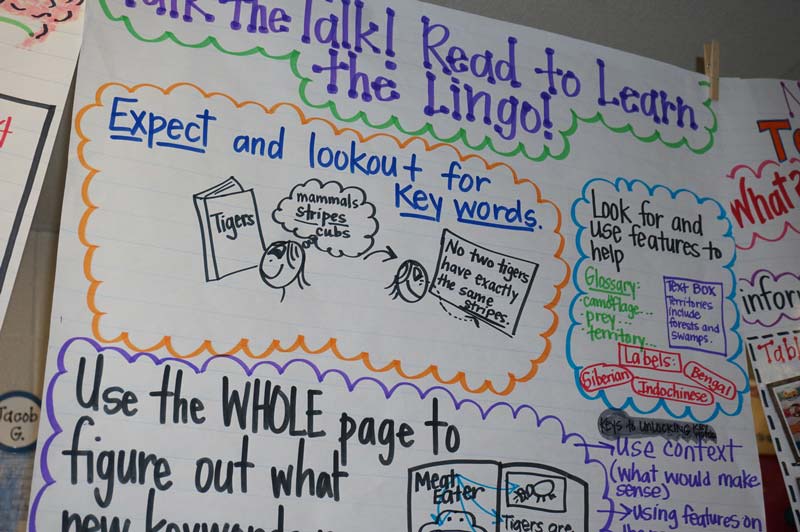 Talk The Talk! Read to Learn
the Lingo!
Expect and lookout for
Key words.
Tigers
mammals
stripes
cubs
No two tigers
have exactly
the same
stripes.
Look for and
use features to
help
Glossary:
camoflage...
prey...
territory...
Text Box
Territories
include
forests and
swamps.
Labels:
Siberian
Bengal
Indochinese
Use the WHOLE page to
figure out what
new keywords
Meat
Eater
Tigers are
KEYS to UNLOCKING
→ Use context
(what would make
sense)
→ using features on
What?
infor
Table
Jacob
G.